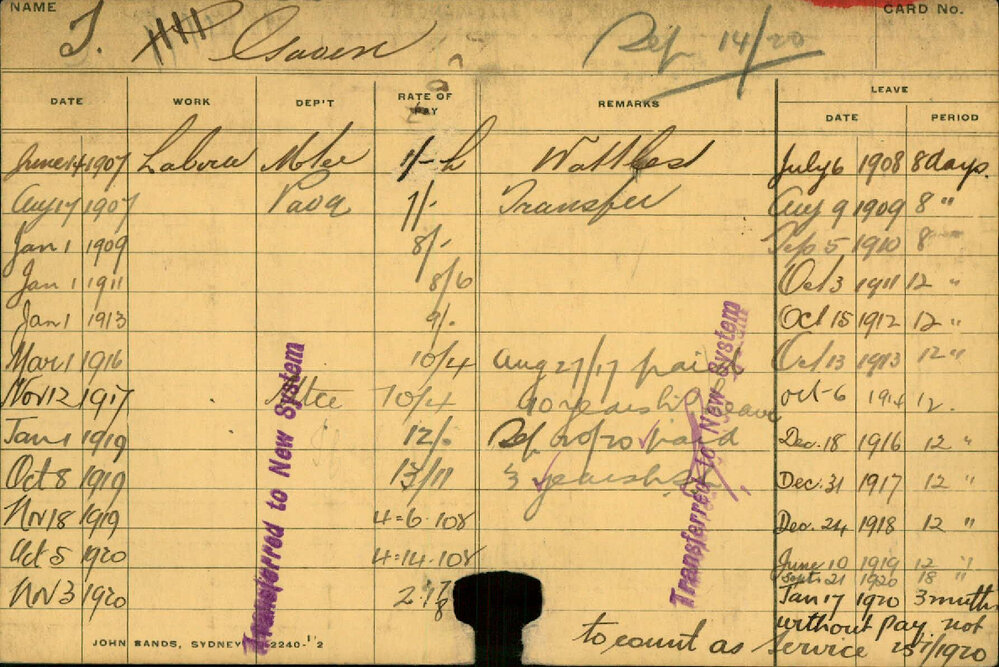 NAME
CARD No.
T. Gavin
Sep 14/20
DATE WORK DEP'T RATE OF PAY REMARKS LEAVE
DATE PERIOD
June 14 1907 Labour 1/- h July 6 1908 8 days
Aug 17 1907 1/- Transfer Aug 9 1909 8 "
Jan 1 1909 8/- Sep 5 1910 8
Jan 1 1911 8/6 Oct 3 1911 12 "
Jan 1 1913 9/- Oct 15 1912 12 "
Mar 1 1916 10/4 Aug 27/17 paid Oct 13 1913 12 "
Nov 12 1917 10/4 10 years leave Oct 6 1914 12.
Jan 1 1919 12/- Sep 20/20 paid Dec. 18 1916 12 "
Oct 8 1919 13/11 3 years Dec. 31 1917 12 "
Nov 18 1919 4=6.108 Dec. 24 1918 12 "
Oct 5 1920 4=14.108 June 10 1919 12 "
Sept 21 1920 18 "
Nov 3 1920 Jan 17 1920 3 mnths
without pay not
to count as service 23/7/1920
Transferred to New System
Transferred to New System
JOHN SANDS, SYDNEY 2240-1'2